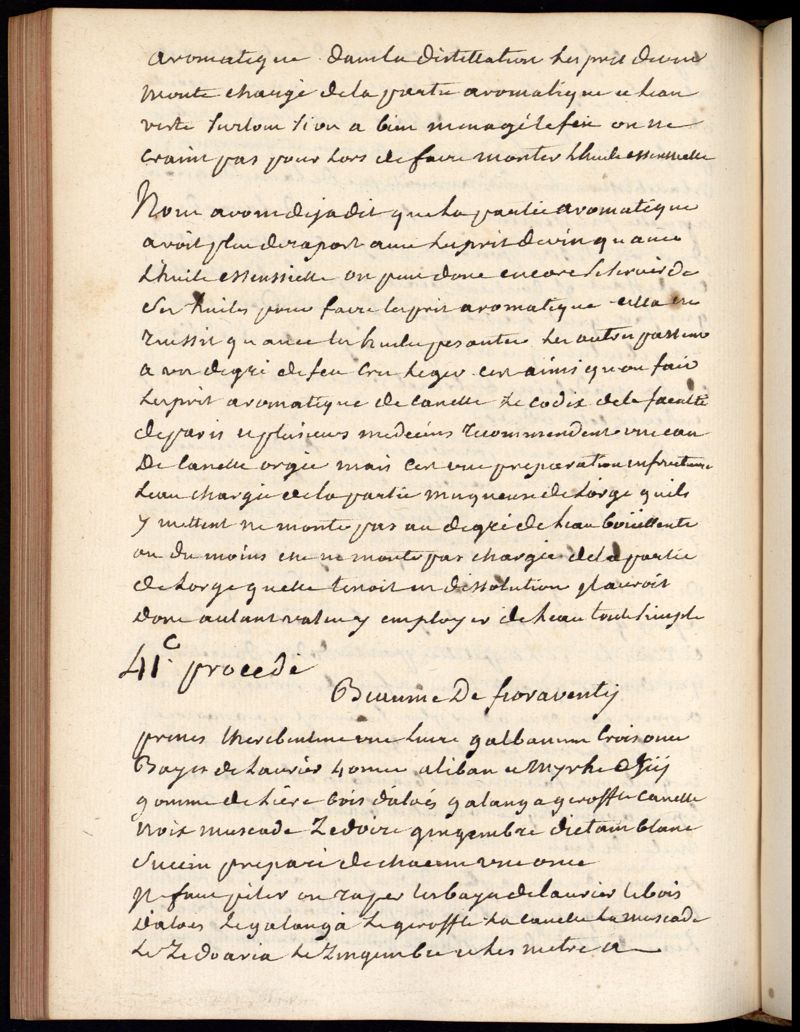 aromatique dans la distillation lesprit devin
monte chargé dela partie aromatique e leau
reste surtout si on a bien menagé lefeu on ne
craint pas pour lors de faire monter lhuile essensielle
Nous avons deja dit que la partie aromatique
avoit plus deraport avec lesprit devin qu avec
lhuile essensielle on peut donc encore se servir de
ses huiles pour faire lesprit aromatique cella ne
reussit qu avec les huiles pesantes les autres passent
a un degré de feu tres leger cest ainsi qu on fait
lesprit aromatique de canelle le codix dela faculté
deparis e plusieurs medecins recommendent une eau
De canelle orgée mais cest une preparation infructueuse
leau chargée dela partie muqueuse de lorge quils
y mettent ne monte pas au degré de leau boüillente
ou du moins elle ne monte pas chargée dela partie
de lorge quelle tenoit en dissolution il auroit
donc autant valu y employer de leau toute simple
41e procedé
Baume De fioraventij
prenes therebentine une livre galbanum trois once
Bayes de laurier 4 once oliban e Myrhe ℥iij
gomme de liére bois daloés galanga geroffle canelle
noix muscade Zedoire gingembre dictam blanc
Succin preparé de chacun une once
Il faut piler ou raper les bayes de laurier le bois
daloes le galanga le geroffle la canelle la muscade
le Zedoaria le Zingembre e les metre a